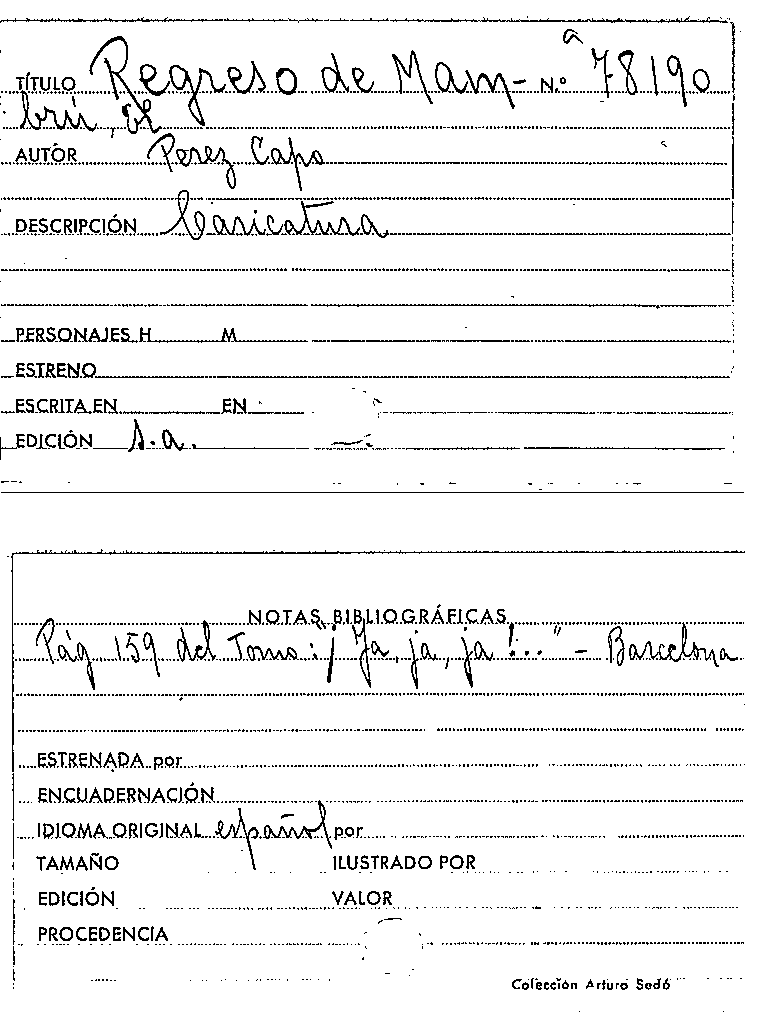 TÍTULO Regreso de Mam- N.º 78190 a
brú, El
AUTOR Perez Capo
DESCRIPCIÓN Caricatura
PERSONAJES H M
ESTRENO
ESCRITA EN EN
EDICIÓN s.a.
NOTAS BIBLIOGRÁFICAS
Pág 159 del Tomo: ¡Ja, ja, ja!..." - Barcelona
ESTRENADA por
ENCUADERNACIÓN
IDIOMA ORIGINAL español por
TAMAÑO ILUSTRADO POR
EDICIÓN VALOR
PROCEDENCIA
Colección Arturo Sedó